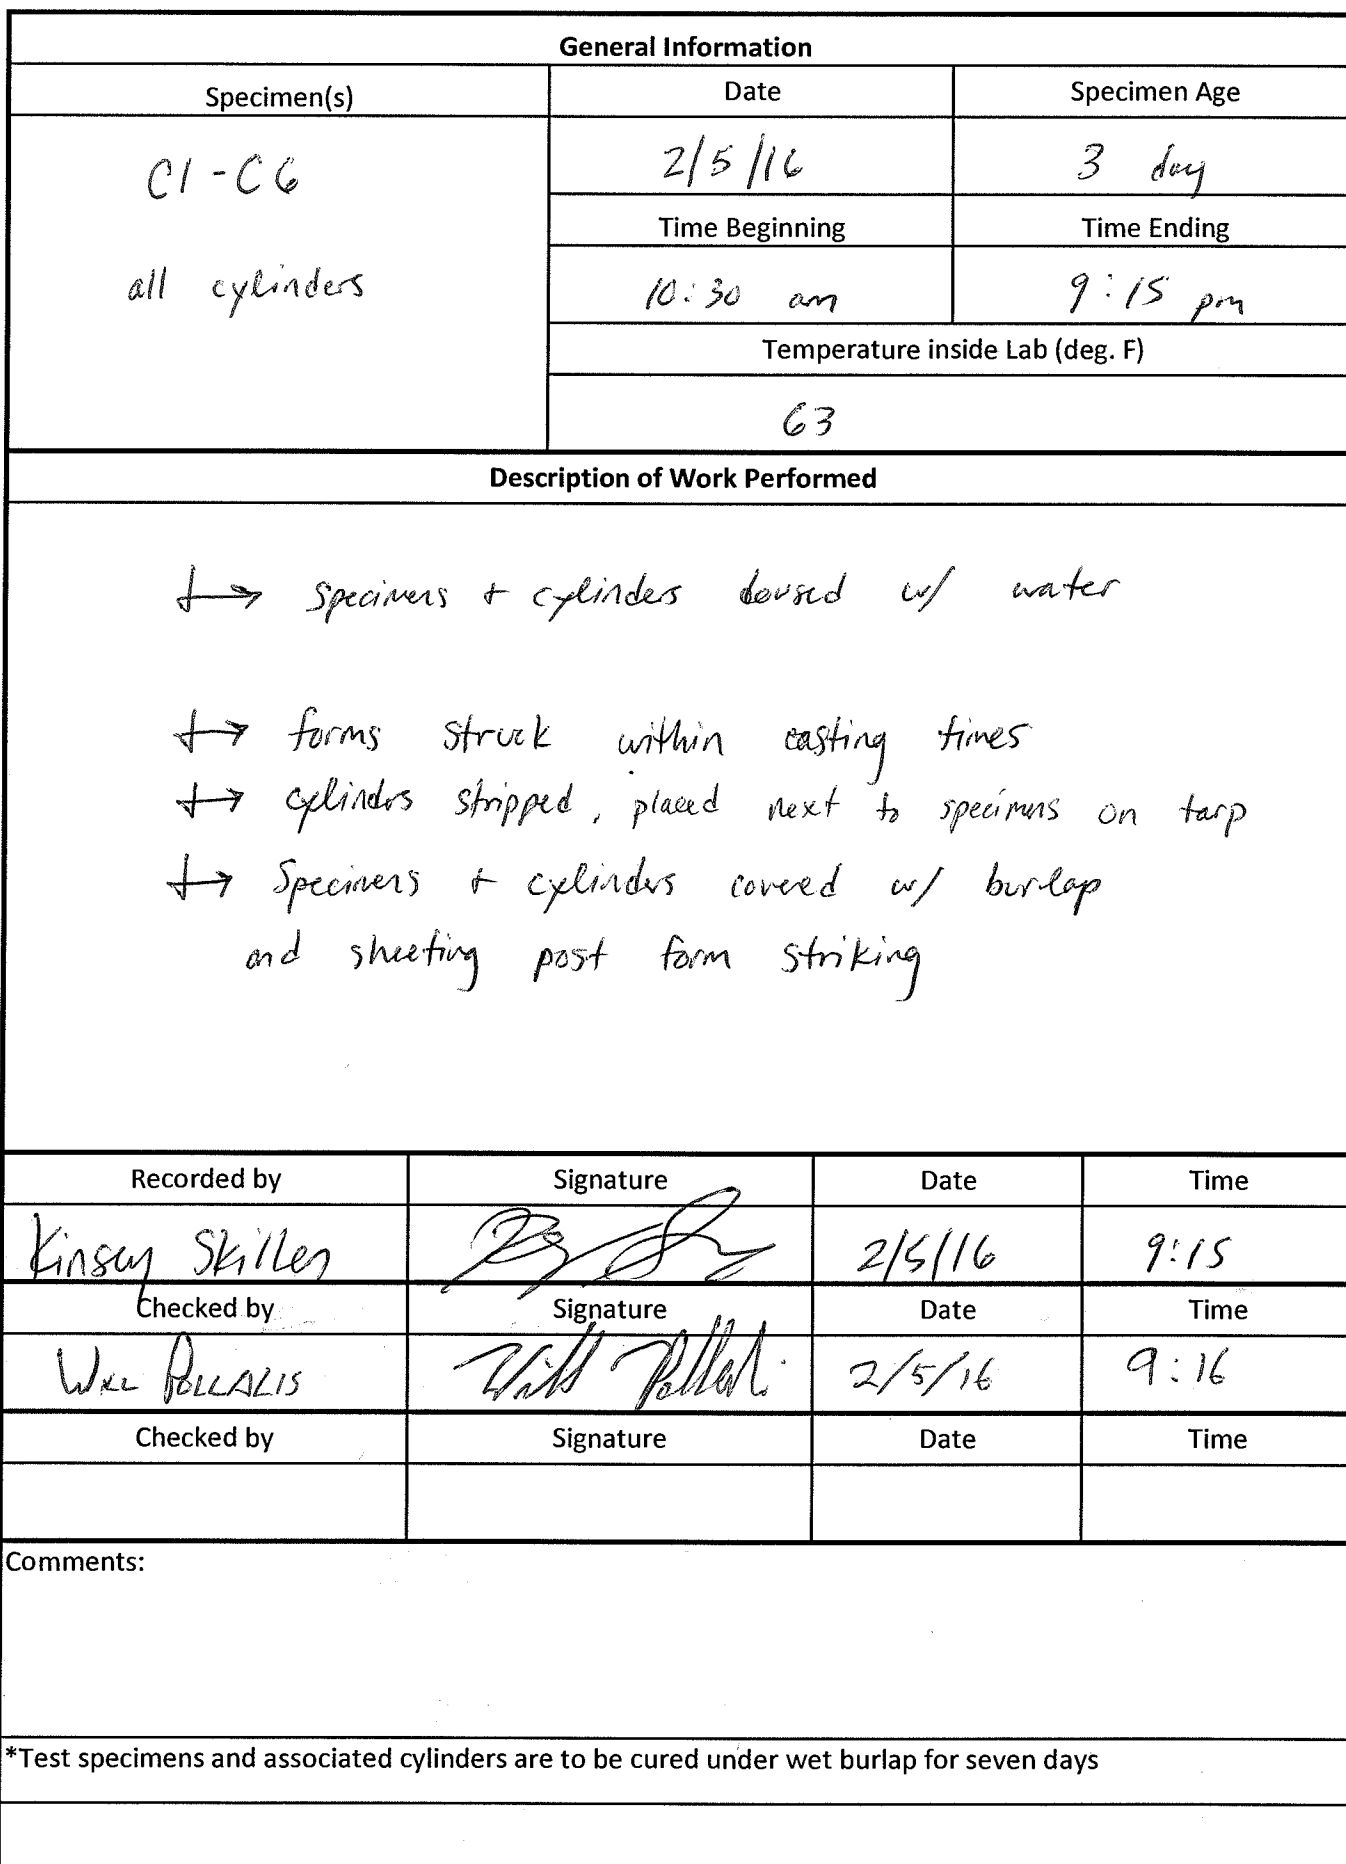 General Information
Specimen(s) Date Specimen Age
C1-C6 2/5/16 3 day
Time Beginning Time Ending
all cylinders 10:30 am 9:15 pm
Temperature inside Lab (deg. F)
63
Description of Work Performed
specimens + cylinders doused w/ water
forms struck within casting times
cylinders stripped, placed next to specimens on tarp
Specimens + cylinders covered w/ burlap
and sheeting post form striking
Recorded by Signature Date Time
Kinsey Skillen 2/5/16 9:15
Checked by Signature Date Time
Will Pollalis Will Pollali 2/5/16 9:16
Checked by Signature Date Time
Comments:
*Test specimens and associated cylinders are to be cured under wet burlap for seven days